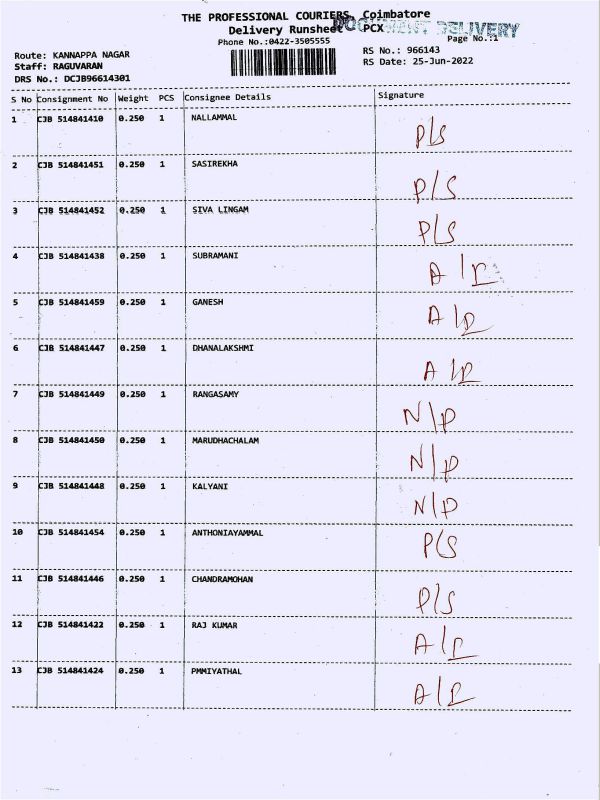 THE PROFESSIONAL COURIERS, Coimbatore
Delivery Runsheet PCX
DOCUMENT DELIVERY
Phone No.:0422-3505555
Page No.:1
Route: KANNAPPA NAGAR
RS No.: 966143
Staff: RAGUVARAN
RS Date: 25-Jun-2022
DRS No.: DCJB96614301
S No Consignment No Weight PCS Consignee Details Signature
1 CJB 514841410 0.250 1 NALLAMMAL P/S
2 CJB 514841451 0.250 1 SASIREKHA P/S
3 CJB 514841452 0.250 1 SIVA LINGAM P/S
4 CJB 514841438 0.250 1 SUBRAMANI A/R
5 CJB 514841459 0.250 1 GANESH A/R
6 CJB 514841447 0.250 1 DHANALAKSHMI A/R
7 CJB 514841449 0.250 1 RANGASAMY N/P
8 CJB 514841450 0.250 1 MARUDHACHALAM N/P
9 CJB 514841448 0.250 1 KALYANI N/P
10 CJB 514841454 0.250 1 ANTHONIAYAMMAL P/S
11 CJB 514841446 0.250 1 CHANDRAMOHAN P/S
12 CJB 514841422 0.250 1 RAJ KUMAR A/R
13 CJB 514841424 0.250 1 PMMIYATHAL A/R